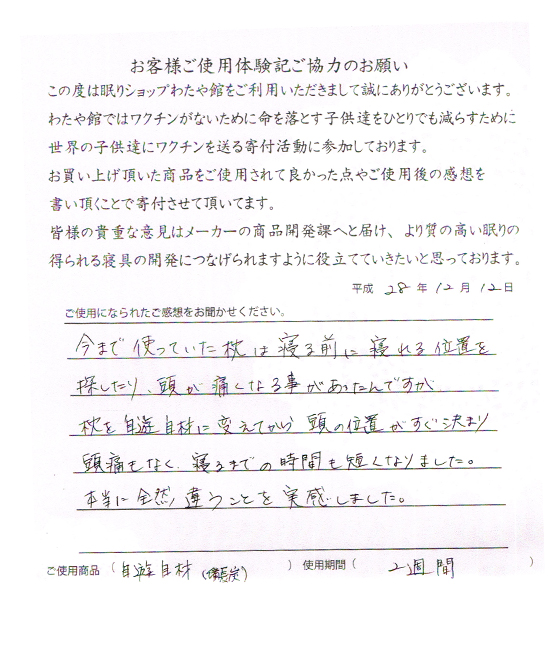 お客様ご使用体験記ご協力のお願い
この度は眠りショップわたや館をご利用いただきまして誠にありがとうございます。
わたや館ではワクチンがないために命を落とす子供達をひとりでも減らすために
世界の子供達にワクチンを送る寄付活動に参加しております。
お買い上げ頂いた商品をご使用されて良かった点やご使用後の感想を
書い頂くことで寄付させて頂いてます。
皆様の貴重な意見はメーカーの商品開発課へと届け、より質の高い眠りの
得られる寝具の開発につなげられますように役立てていきたいと思っております。
平成 28 年 12 月 12 日
ご使用になられたご感想をお聞かせください。
今まで使っていた枕は寝る前に寝れる位置を
探したり、頭が痛くなる事があったんですが
枕を自遊自材に変えてから頭の位置がすぐ決まり
頭痛もなく、寝るまでの時間も短くなりました。
本当に全然違うことを実感しました。
ご使用商品（自遊自材（備長炭）） 使用期間（ 2週間 ）